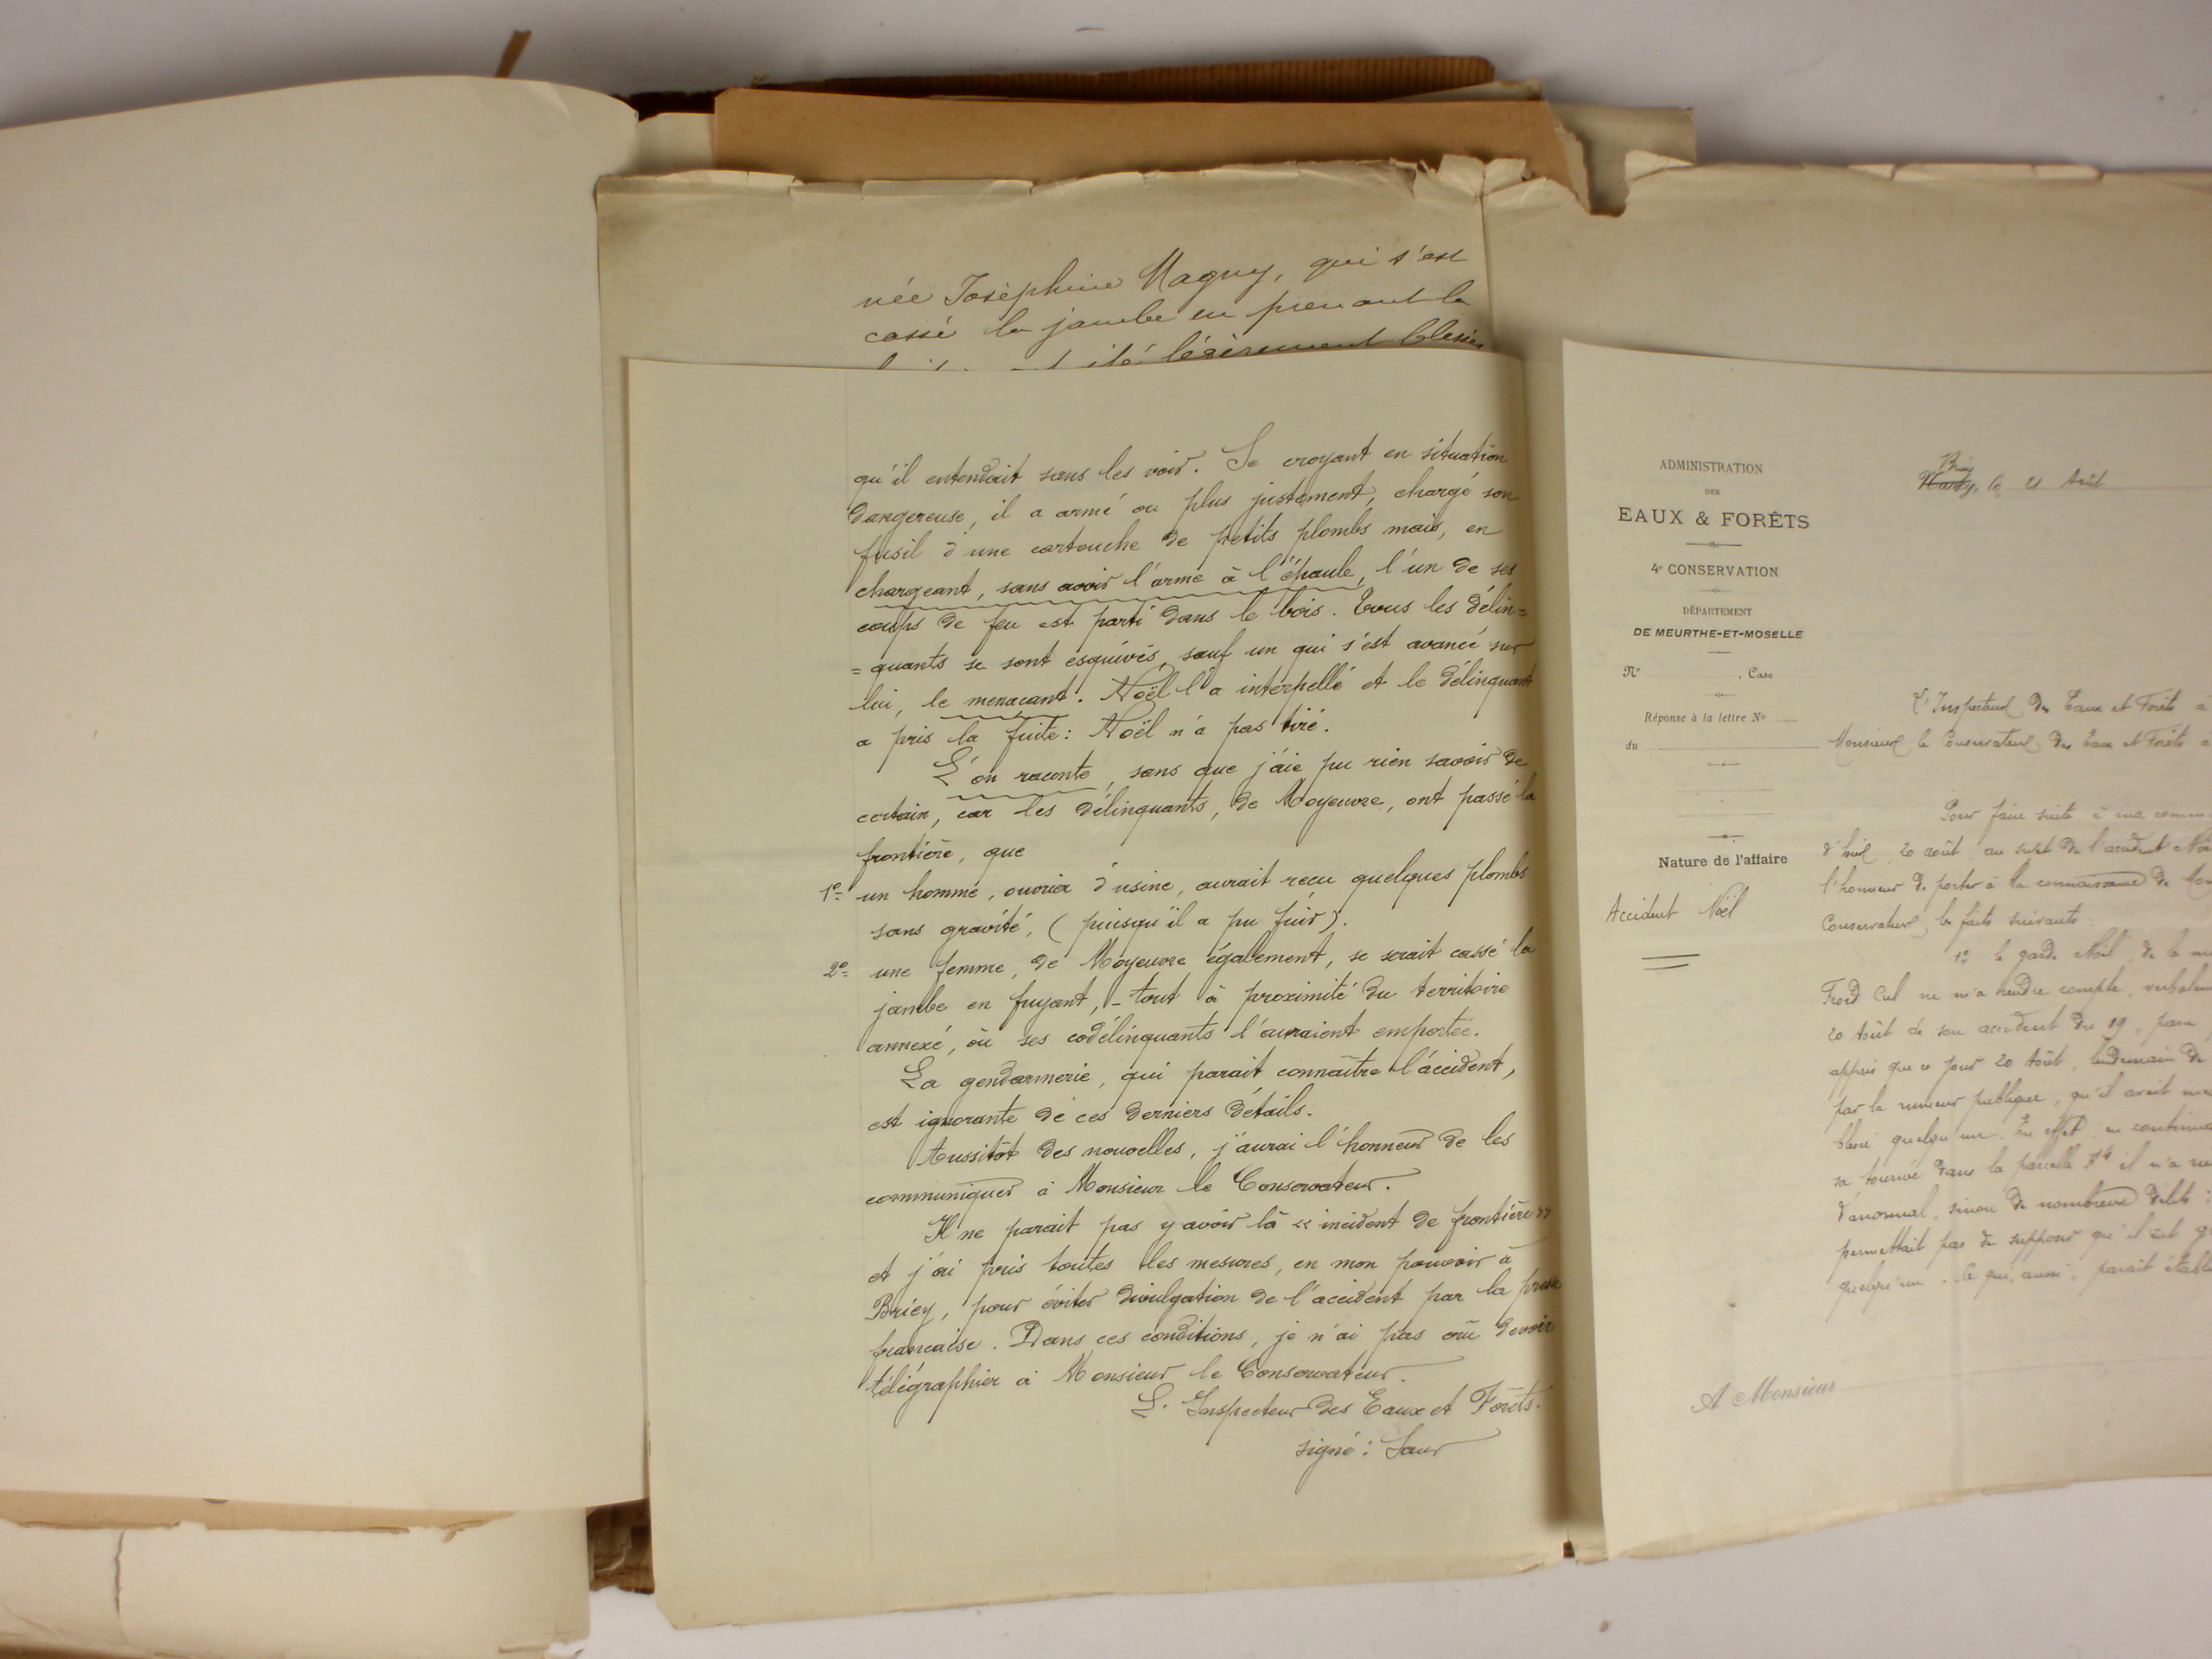 née Josèphine Magny, qui s'est
cassé la jambe en prenant la
été légèrement blessés
qu'il entendait sans les voir. Se croyant en situation
dangereuse, il a armé ou plus justement, chargé son
fusil d'une cartouche de petits plombs mais, en
chargeant, sans avoir l'arme à l'épaule, l'un de ses
coups de feu est parti dans le bois. Tous les délin=
=quants se sont esquivés, sauf un qui s'est avancé sur
lui, le menacant. Noël l'a interpellé et le délinquant
a pris la fuite: Noël n'a pas tiré.
L'on raconte, sans que j'aie pu rien savoir de
certain, car les délinquants, de Moyeuvre, ont passé la
frontière, que
1º un homme, ouvrier d'usine, aurait reçu quelques plombs
sans gravité, (puisqu'il a pu fuir).
2º une femme, de Moyeuvre également, se serait cassé la
jambe en fuyant, - tout à proximité du territoire
annexé, où ses codélinquants l'auraient emportée.
La gendarmerie, qui parait connaître l'accident,
est ignorante de ces derniers détails.
Aussitôt des nouvelles, j'aurai l'honneur de les
communiquer à Monsieur le Conservateur.
Il ne parait pas y avoir là "incident de frontière"
et j'ai pris toutes les mesures, en mon pouvoir à
Briey, pour éviter divulgation de l'accident par la presse
francaise. Dans ces conditions, je n'ai pas crû devoir
télégraphier à Monsieur le Conservateur.
L. Inspecteur des Eaux et Forêts.
signé:
ADMINISTRATION
DES
EAUX & FORÊTS
4e CONSERVATION
DÉPARTEMENT
DE MEURTHE-ET-MOSELLE
Nº , Case
Réponse à la lettre Nº
du
Nature de l'affaire
Accident Noël
Briey
Nancy, le 21 Août
L'Inspecteur des Eaux et Forêts à
Monsieur le Conservateur des Eaux et Forêts à
Pour faire suite à ma
d'hier, 20 août, au sujet de l'accident
l'honneur de porter à la connaissance de
Conservateur, les faits suivants:
1º le garde Noël, de la
Froid Cul ne m'a rendre compte,
20 Août de son accident du 19,
appris que ce jour 20 Août, lendemain de
par la rumeur publique, qu'il avait
blessé quelqu'un. En effet, en
sa tournée dans la parcelle il n'a
d'anormal, sinon de nombreux délits:
permettait pas de supposer qu'il eût
quelqu'un. Ce qui, aussi, parait
A Monsieur